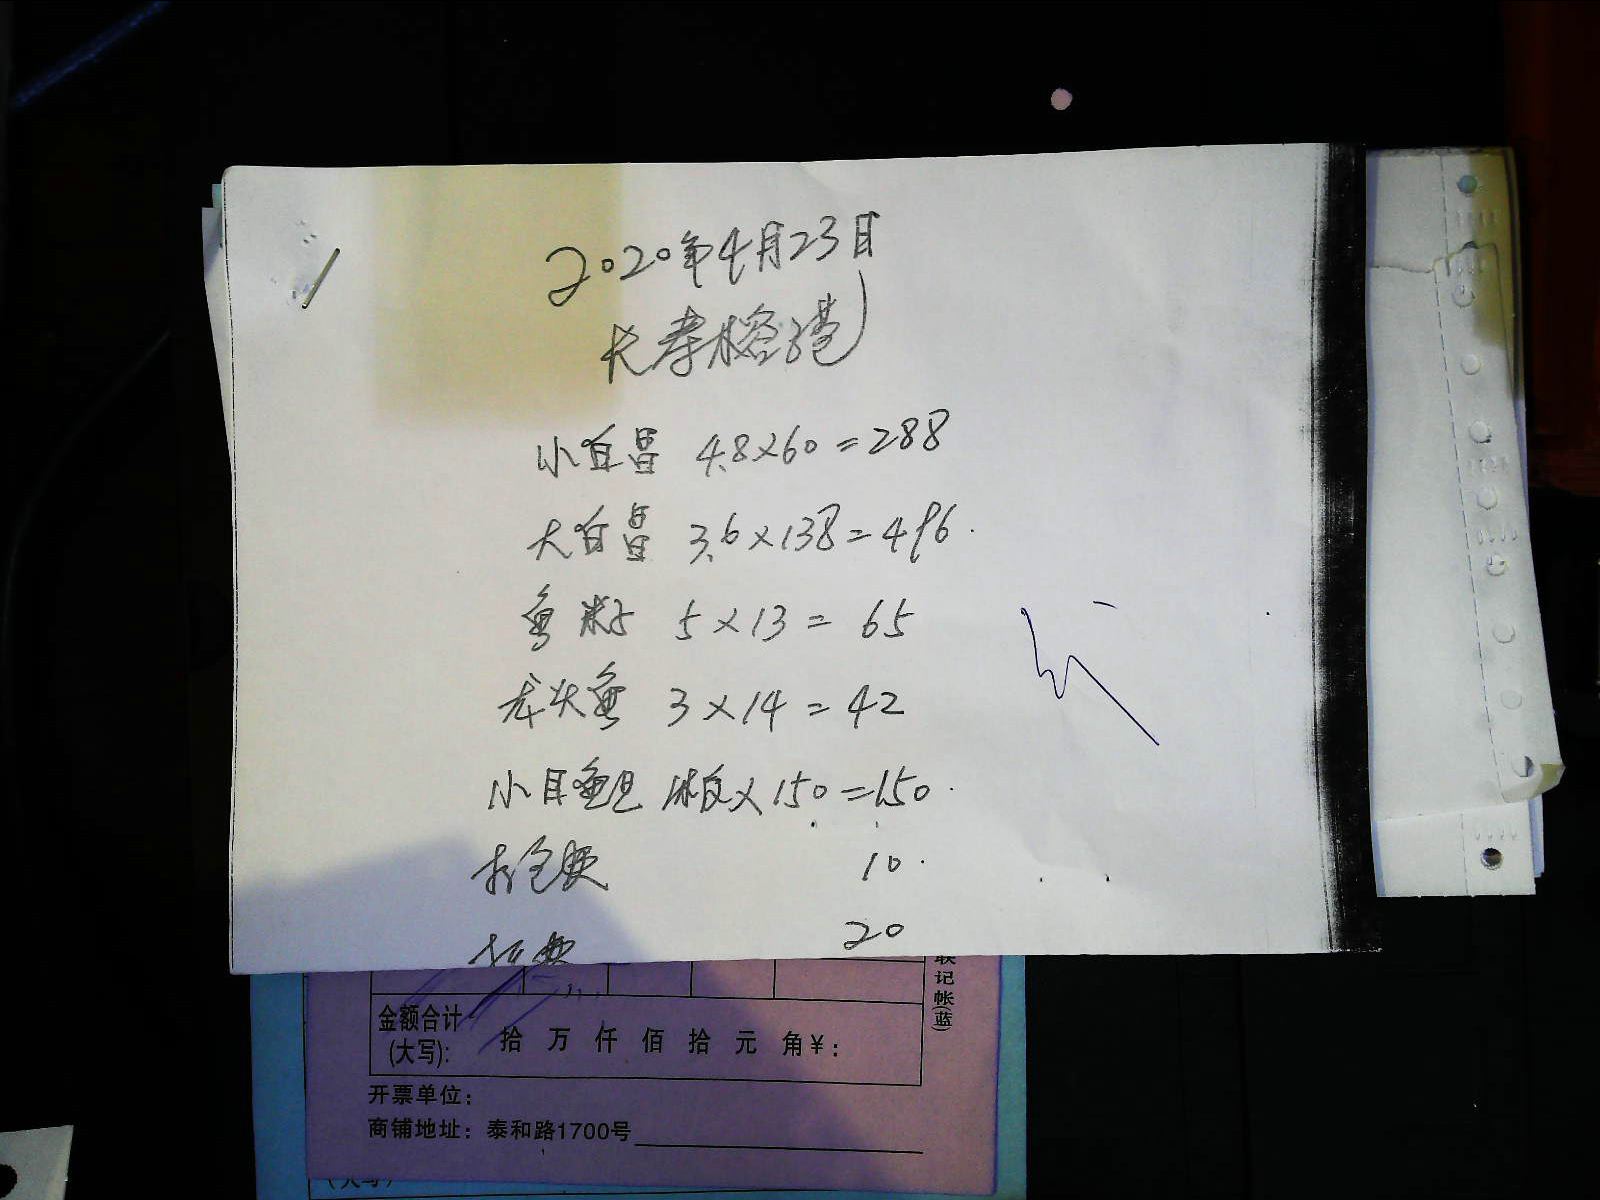 2020年4月23日
长寿榕港
小白昌 4.8×60=288
大白昌 3.6×138=496.
鱼籽 5×13=65
龙头鱼 3×14=42
小目鱼旦 ×150=150.
打包费 10.
20
联记帐(蓝)
金额合计
(大写): 拾 万 仟 佰 拾 元 角¥:
开票单位:
商铺地址: 泰和路1700号